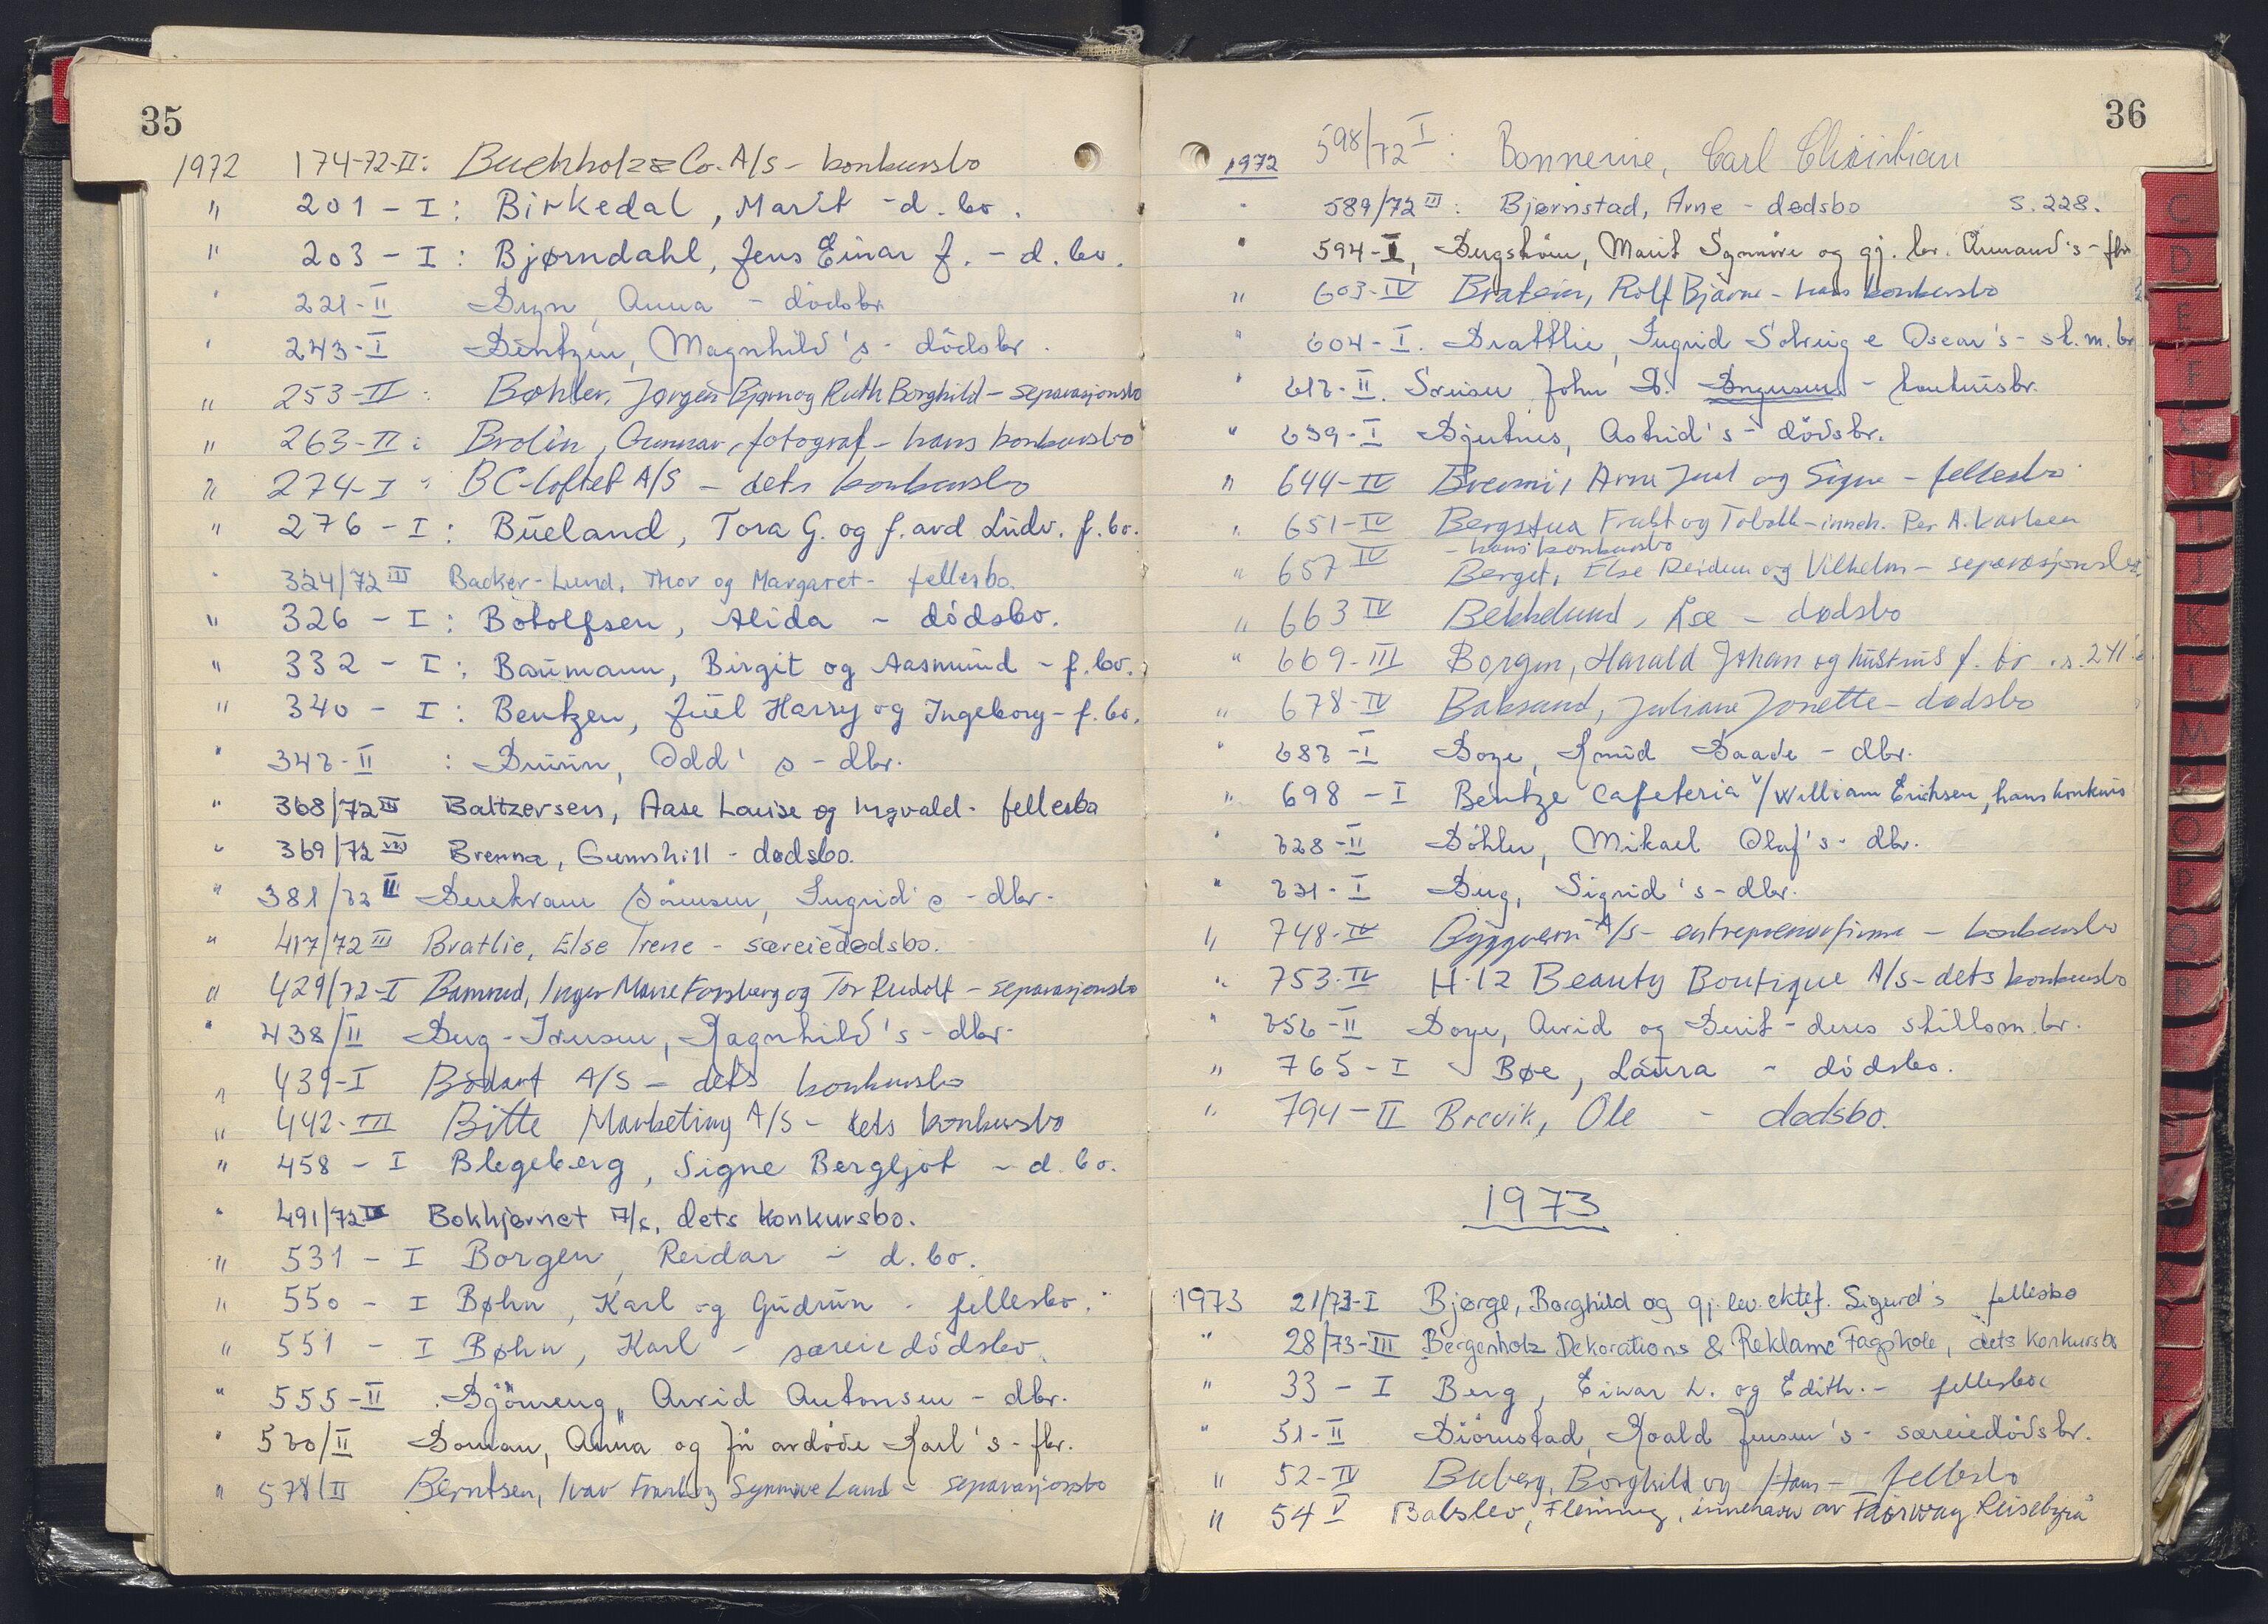 35
1972 174-72-II: Buchholz & Co. A/S - konkursbo
" 201 - I : Birkedal, Marit - d. bo.
" 203 - I : Bjørndahl, Jens Einar f. - d. bo.
" 221-II Bryn, Anna - dödsbr
" 243-I Bentzen, Magnhild's - dödsbr.
" 253-II : Bøhler, Jørgen Bjørn og Ruth Borghild - separasjonsbo
" 263-II : Brolin, Gunnar, fotograf - hans konkursbo
" 274-I : BC-loftet A/S - dets konkursbo
" 276 - I : Büeland, Tora G. og f. avd Ludv. f. bo.
" 324/72 III Backer-Lund, Thor og Margaret - fellesbo.
" 326 - I : Botolfsen, Alida - dödsbo.
" 332 - I : Baumann, Birgit og Aasmund - f. bo.
" 340 - I : Bentzen, Juel Harry og Ingeborg - f. bo.
" 347-II : Bruun, Odd's - dbr.
" 368/72 III Baltzersen, Aase Louise og Ingvald - fellesbo
" 369/72 III Brenna, Gunnhill - dødsbo.
" 381/72 II Benekram Sörensen, Ingrid's - dbr.
" 417/72 III Bratlie, Else Irene - særeiedødsbo.
" 429/72-I Bamrud, Inger Marie Forsberg og Tor Rudolf - separasjonsbo
" 438/II Berg-Iversen, Ragnhild's - dbr.
" 439-I Bodant A/S - dets konkursbo
" 442-III Bitte Marketing A/S - dets konkursbo
" 458 - I Blegeberg, Signe Bergljot - d. bo.
" 491/72 Bokhjørnet A/S, dets konkursbo.
" 531 - I Borgen, Reidar - d. bo.
" 550 - I Bøhn, Karl og Gudrun - fellesbo.
" 551 - I Bøhn, Karl - særeiedödsbo.
" 555-II Björneng, Arvid Antonsen - dbr.
" 570/II Boman, Anna og før avdöde Karl's - fbr.
" 578/II Berntsen, Ivar Frank og Synnøve Lund - separasjonsbo
36
1972 598/72 I : Bonnevie, Carl Christian
" 589/72 III : Bjørnstad, Arne - dødsbo s. 228.
" 594-I, Bergström, Marit Synnöve og gj. lev. Amand's - fbr
" 603-IV Bråten, Rolf Bjarne - hans konkursbo
" 604-I. Brattlie, Ingrid Solveig e Oscar's - sk.m.br
" 617-II. John B. - konkursbr.
" 639-I Bjertnes, Astrid's - dödsbr.
" 644-IV Bremni, Arne Juel og Signe - fellesbo
" 651-IV Bergstua Frukt og Tobakk - inneh. Per A. Karlsen
- hans konkursbo
" 657 IV Berget, Else Reidun og Vilhelm - separasjonsbo
" 663 IV Bekkelund, Åse - dødsbo
" 669-III Borgen, Harald Johan og hustrus f. bo. s. 241
" 678-IV Baksand, Juliane Jonette - dødsbo
" 687-I Boye, Knud Baade - dbr.
" 698 - I Bentze Cafeteria v/ William Erichsen, hans konkurs
" 728-II Böhler, Mikael Olaf's - dbr.
" 731-I Berg, Sigrid's - dbr.
" 748-IV Byggvern A/S - entreprenørfirma - konkursbo
" 753-IV H-12 Beauty Boutique A/S - dets konkursbo
" 757-II Boye, Arvid og Berit - deres skillsm. br.
" 765 - I Bøe, Laura - dödsbo.
" 794-II Brevik, Ole - dødsbo.
1973
1973 21/73-I Bjørge, Borghild og gj. lev. ektef. Sigurd's fellesbo
" 28/73-III Bergenholz Dekorations & Reklame Fagskole, dets konkursbo
" 33 - I Berg, Einar L. og Edith. - fellesbo
" 51-II Björnstad, Roald Jensen's - særeiedödsbr.
" 52-IV Bieberg, Borghild og Hans - fellesbo
" 54 V Balslev, Flemming, innehaver av Fairway Reisebyrå
C
D
E
F
G
H
I
J
K
L
M
O
P
Q
R
X
Y
Z